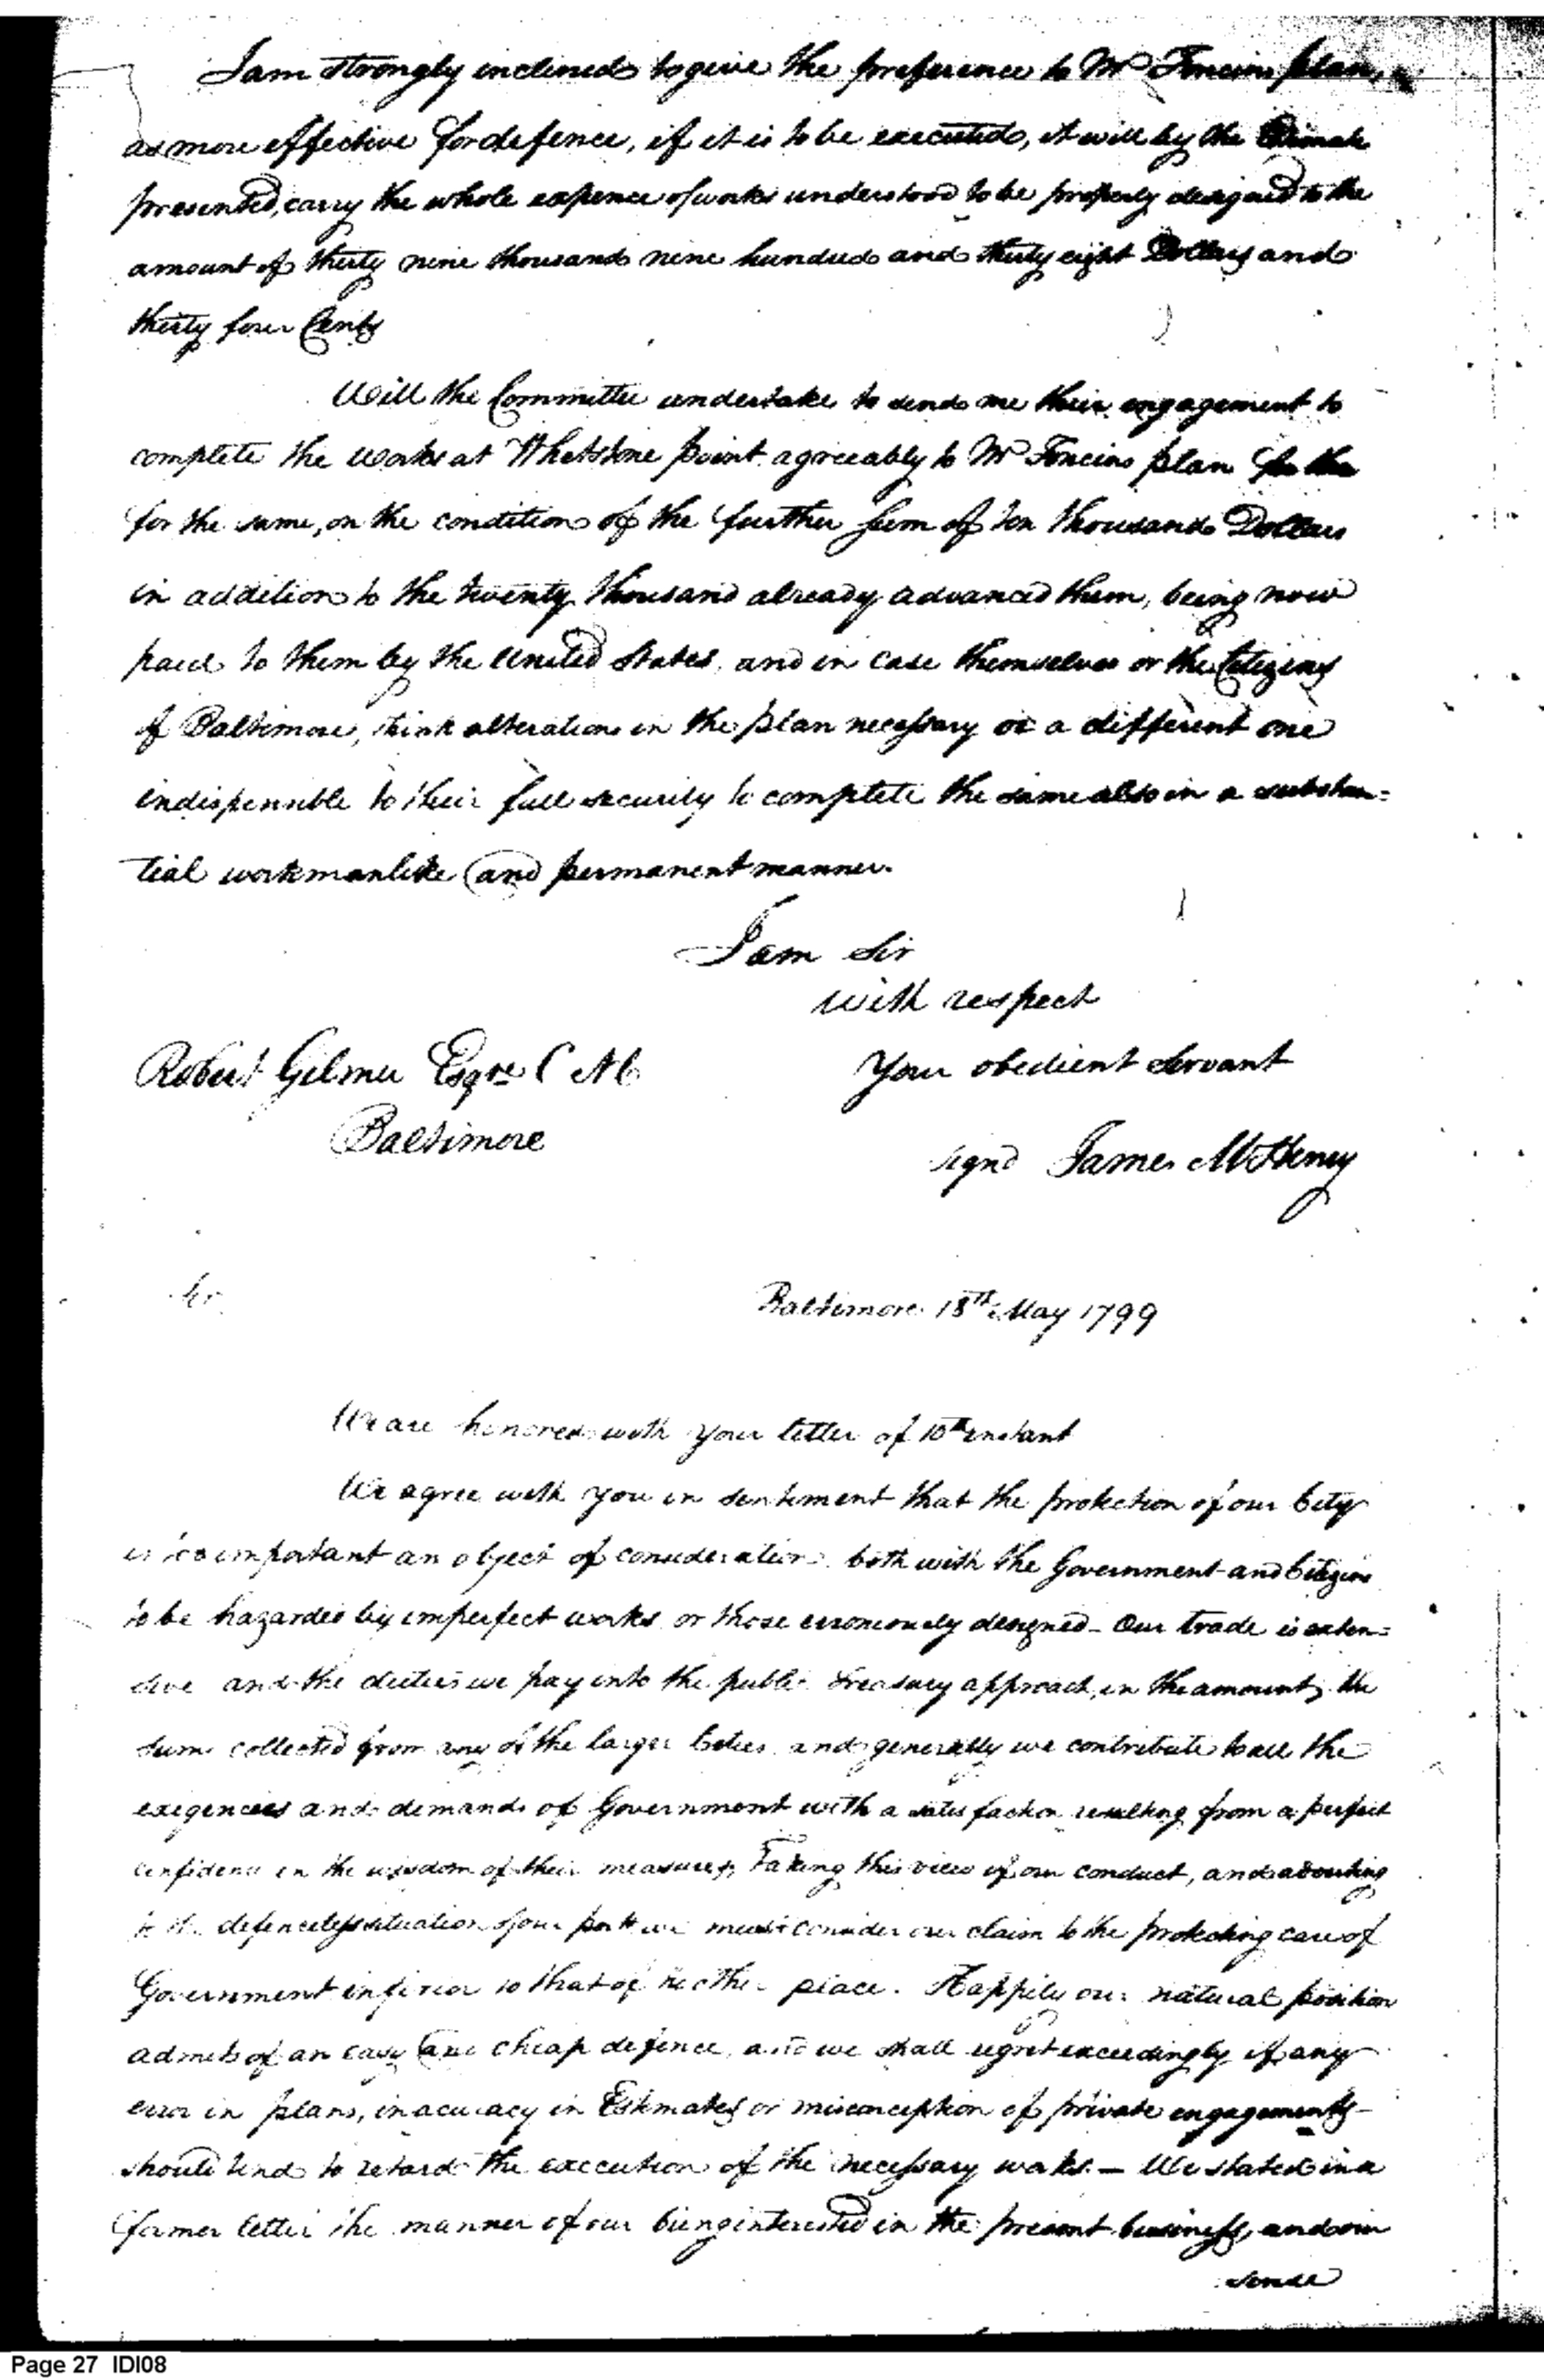 I am strongly inclined to give the preference to Mr Foncins plan,
as more effective for defence, if it is to be executed, it will by the Estimate
presented, carry the whole expence of works understood to be properly designed to the
amount of thirty nine thousand nine hundred and thirty eight Dollars and
thirty four Cents
Will the Committee undertake to send me their engagement to
complete the works at Whetstone point agreeably to Mr Foncins plan
for the same, on the condition of the further sum of ten thousand Dollars
in addition to the twenty thousand already advanced them, being now
paid to them by the United States, and in case themselves or the Citizens
of Baltimore, think alterations in the plan necessary or a different one
indispensible to their full security to complete the same also in a substan=
tial workmanlike and permanent manner.
I am Sir
with respect
Robert Gilmer Esqre C M C
Your obedient Servant
Baltimore
signd James McHenry
Sir
Baltimore 18th May 1799
We are honored with your letter of 10th instant
We agree with you in sentiment that the protection of our City
is too important an object of consideration both with the Government and Citizens
to be hazarded by imperfect works or those erroneously designed - Our trade is exten=
sive and the duties we pay into the public treasury approach, in the amount, the
sums collected from any of the larger Cities and generally we contribute to all the
exigencies and demands of Government with a satisfaction resulting from a perfect
confidence in the wisdom of their measures, Taking this view of our conduct, and adverting
to the defenceless situation of our port we must consider our claim to the protecting care of
Government inferior to that of no other place. Happily our natural position
admits of an easy and cheap defence, and we shall regret exceedingly if any
error in plans, inacuracy in Estimates or misconception of private engagements
should tend to retard the execution of the necessary works. — We stated in a
former letter the manner of our being interested in the present business, and our
Page 27 IDI08